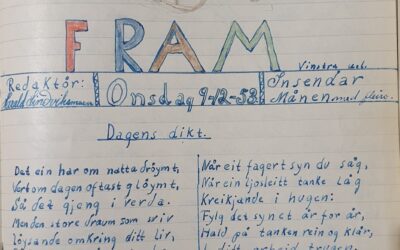 FRAM
Vinstra
Redaktör:
Onsdag 9-12-53.
Insendar
Månen med fleire.
Dagens dikt.
Det ein har om natta dröymt,
Vert om dagen oftast glöymt,
Så det gjeng i verda.
Men den store draum som sviv
löysande omkring ditt liv,
Når eit fagert syn du såg,
Når ein ljosleitt tanke låg
Kreikjande i hugen:
Fylg det synet år for år,
Hald på tanken rein og klår,
I ditt arbeid trugen